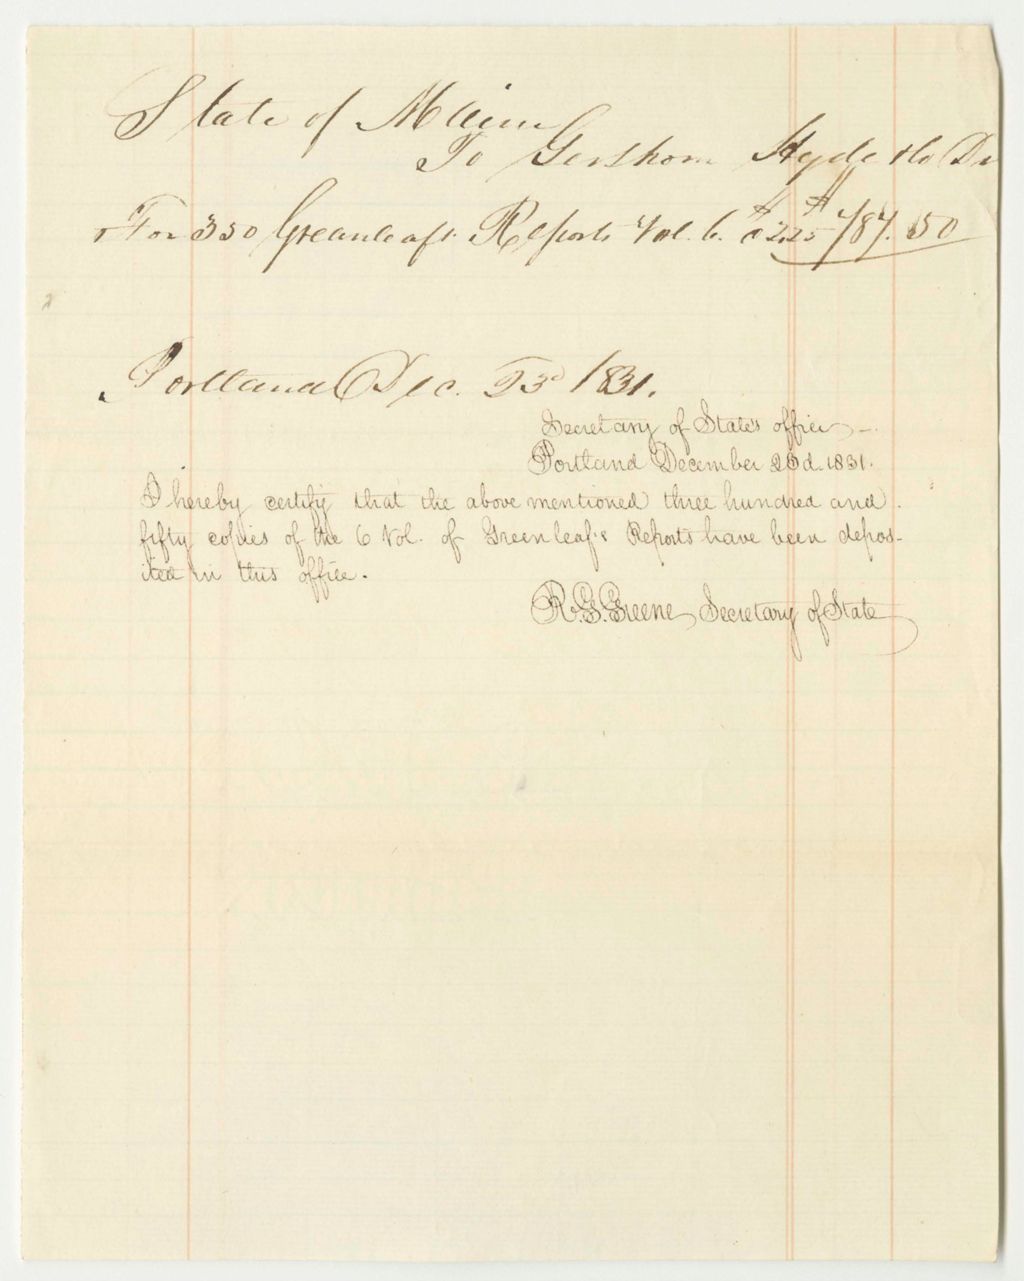 State of Maine
To Gershom Hyde & Co Dr
For 350 Greenleafs Reports Vol. 6. @ $2.25 $787.50
Portland Dec. 23d 1831.
Secretary of State's office
Portland December 23d. 1831.
I hereby certify that the above mentioned three hundred and
fifty copies of the 6 Vol. of Greenleaf's Reports have been depos-
ited in this office.
R. G. Greene, Secretary of State